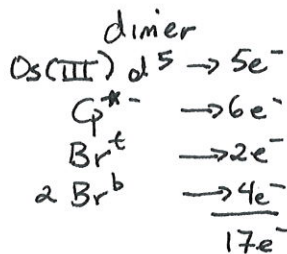 dimer
Os(III) d⁵ → 5e⁻
Cp*⁻ → 6e⁻
Brᵗ → 2e⁻
2 Brᵇ → 4e⁻
17e⁻